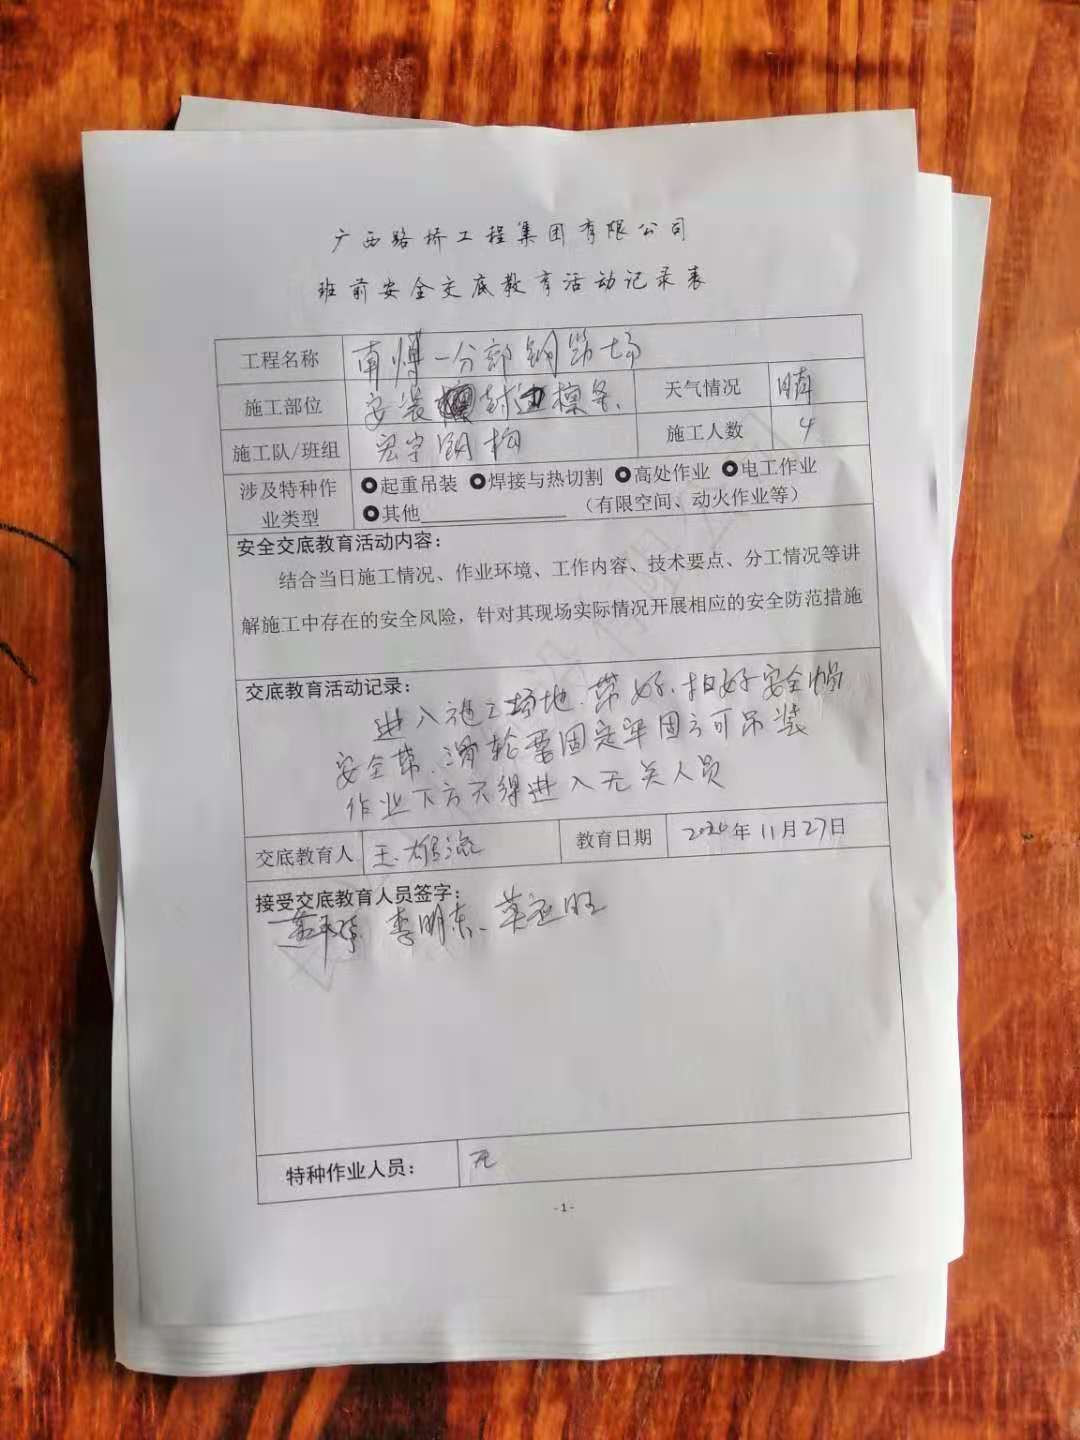 广西路桥工程集团有限公司
班前安全交底教育活动记录表
工程名称 南 一分部钢筋场
施工部位 安装 封边檩条、 天气情况 晴
施工队/班组 宏宇钢构 施工人数 4
涉及特种作业类型 起重吊装 焊接与热切割 高处作业 电工作业
其他 （有限空间、动火作业等）
安全交底教育活动内容：
结合当日施工情况、作业环境、工作内容、技术要点、分工情况等讲
解施工中存在的安全风险，针对其现场实际情况开展相应的安全防范措施
交底教育活动记录：
进入施工场地、带好、扣好安全帽
安全带、滑轮要固定牢固方可吊装
作业下方不得进入无关人员
交底教育人 王 教育日期 年11月27日
接受交底教育人员签字：
李明东、 旺
特种作业人员： 无
-1-